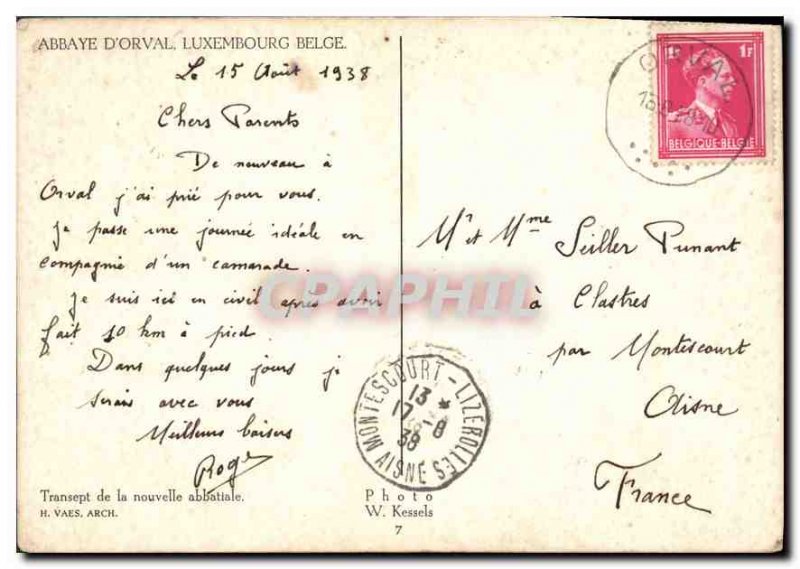 ABBAYE D'ORVAL, LUXEMBOURG BELGE.
Le 15 Août 1938
Chers Parents
De nouveau à
Orval j'ai prié pour vous.
Je passe une journée idéale en
compagnie d'un camarade.
Je suis ici en civil après avoir
fait 10 km à pied.
Dans quelques jours je
serais avec vous
Meilleurs baisers
Roger
Transept de la nouvelle abbatiale.
H. VAES, ARCH.
Photo
W. Kessels
7
1F 1F
BELGIQUE-BELGIË
ORVAL
Mr et Mme Seiller Punant
à Clastres
par Montescourt
Aisne
France
MONTESCOURT-LIZEROLLES
13 *
17 -8
38
AISNE
CPAPHIL